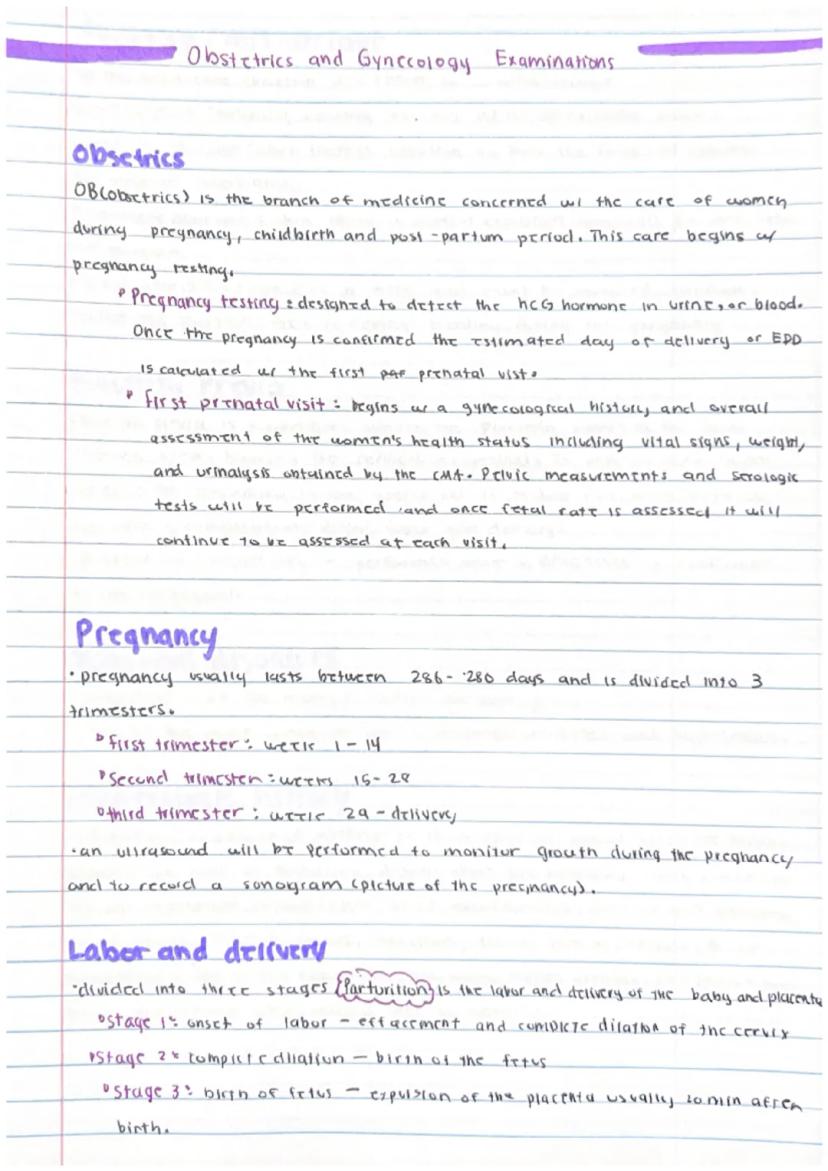 Obstetrics and Gynecology Examinations
Obsetrics
OB(obsetrics) is the branch of medicine concerned w/ the care of women
during pregnancy, childbirth and post-partum period. This care begins w/
pregnancy testing.
Pregnancy testing: designed to detect the hCG hormone in urine, or blood.
Once the pregnancy is confirmed the estimated day of delivery or EDD
is calculated w/ the first prenatal vist.
First prenatal visit: begins w a gynecological history, and overall
assessment of the women's health status including vital signs, weight,
and urinalysis obtained by the CMA. Pelvic measurements and serologic
tests will be performed and once fetal rate is assessed it will
continue to be assessed at each visit.
Pregnancy
·pregnancy usually lasts between 286-280 days and is divided into 3
trimesters.
First trimester: week 1-14
Second trimester: weeks 15-28
third trimester: week 29-delivery
·an ultrasound will be performed to monitor growth during the pregnancy
and to record a sonogram (picture of the pregnancy).
Labor and delivery
·divided into three stages (Parturition) is the labor and delivery of the baby and placenta
Stage 1: onset of labor - effacement and complete dilation of the cervix
Stage 2: complete dilation - birth of the fetus
Stage 3: birth of fetus - expulsion of the placenta usually min after
birth.